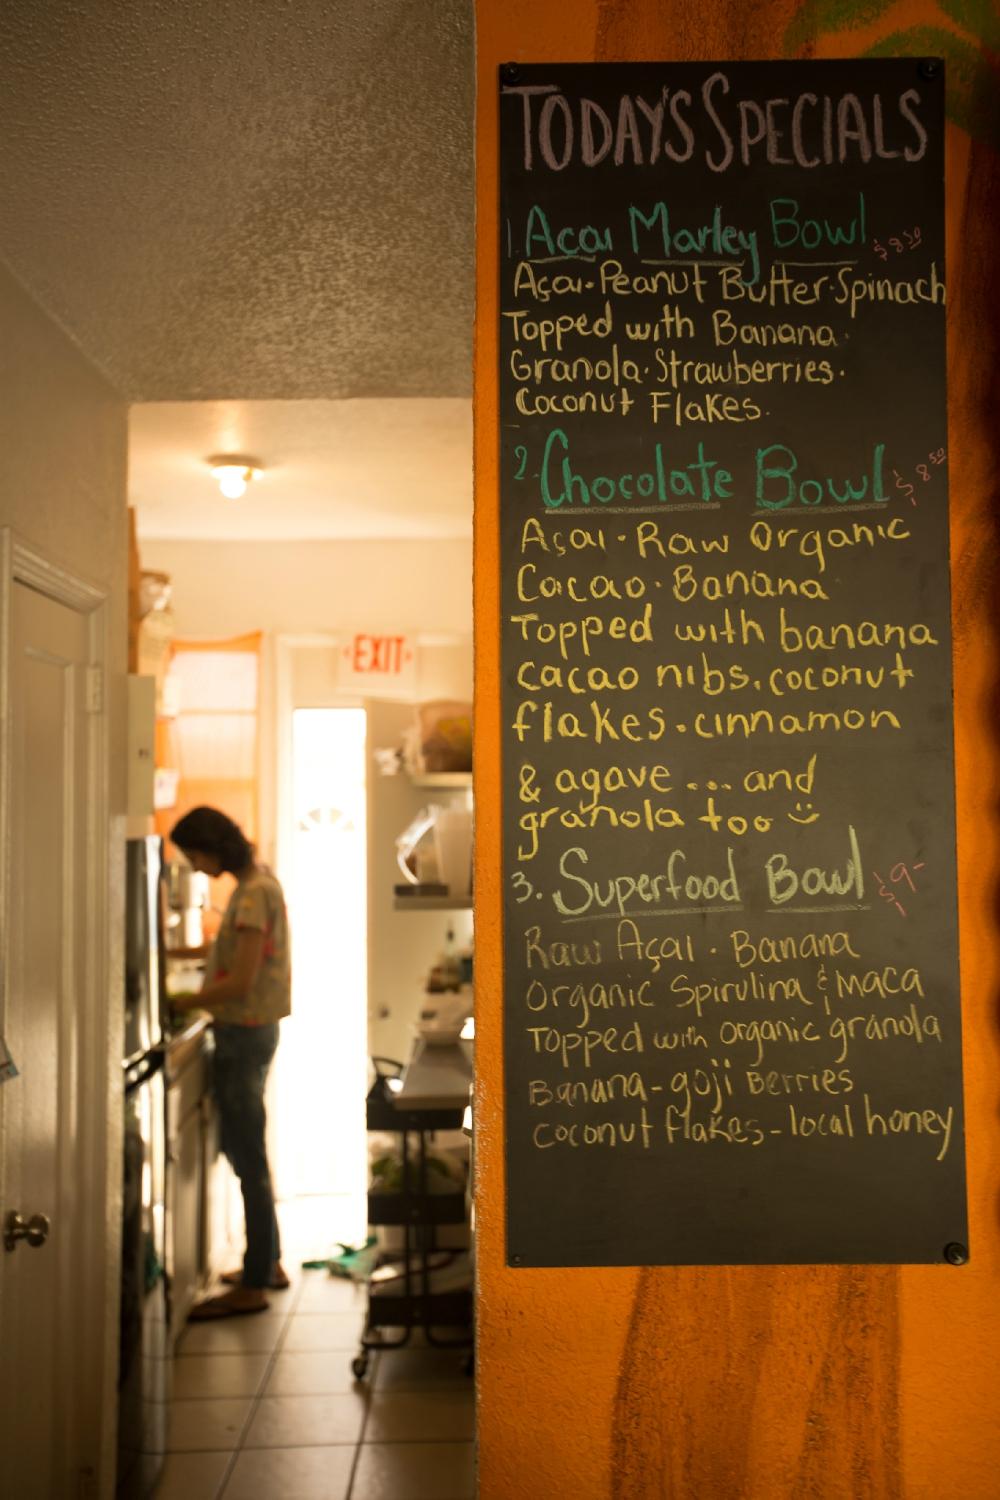 TODAY'S SPECIALS
1. Açai Marley Bowl $8.50
Açai·Peanut Butter·Spinach
Topped with Banana·
Granola·Strawberries·
Coconut Flakes.
2. Chocolate Bowl $8.50
Açai·Raw Organic
Cacao·Banana
Topped with banana
cacao nibs.coconut
flakes.cinnamon
& agave ... and
granola too :)
3. Superfood Bowl $9-
Raw Açai · Banana
Organic Spirulina & Maca
Topped with organic granola
Banana-goji Berries
Coconut flakes-local honey
EXIT